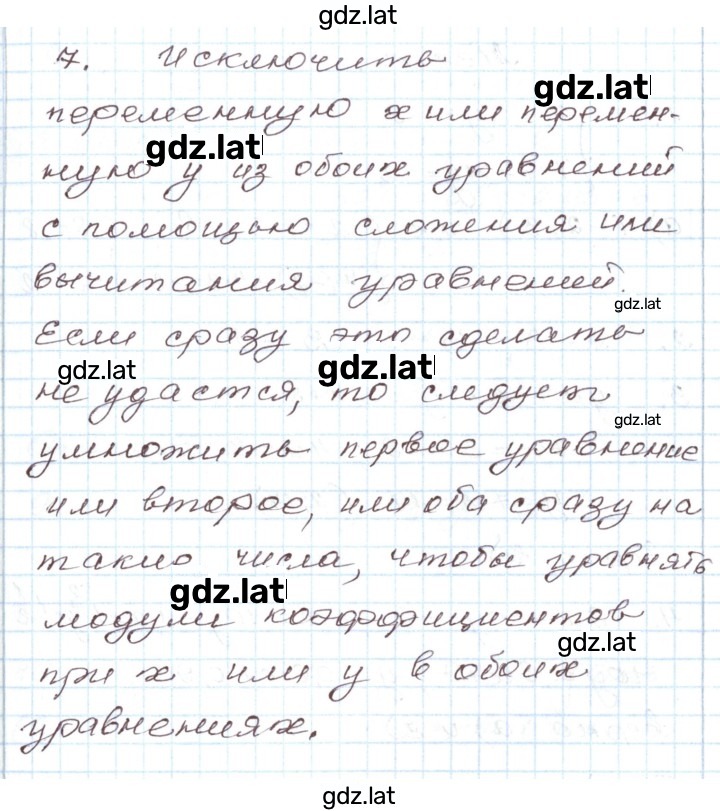 gdz.lat
7. Исключить
gdz.lat
переменную x или перемен-
gdz.lat
ную y из обоих уравнений
с помощью сложения или
вычитания уравнений.
gdz.lat
Если сразу это сделать
gdz.lat gdz.lat
не удастся, то следует
gdz.lat
умножить первое уравнение
или второе, или оба сразу на
такие числа, чтобы уравнять
gdz.lat
модули коэффициентов
gdz.lat
при x или y в обоих
уравнениях.
gdz.lat